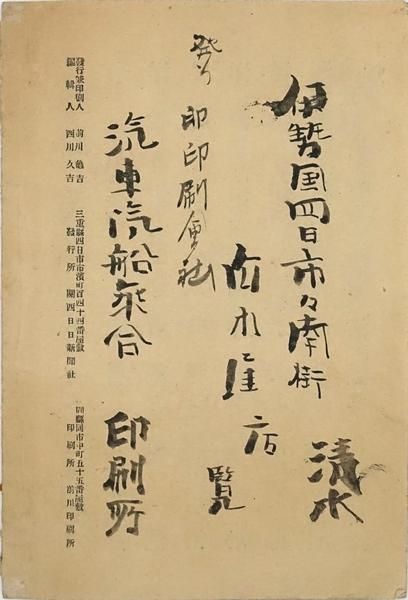 伊勢国四日市々南街
清水
白木屋店
覧
印印刷會社
汽車汽船乗合
印刷所
發行兼印刷人 前川亀吉 三重縣四日市市濱町百四十四番屋敷 同縣同市中町五十五番屋敷
編輯人 四川久吉 發行所 關四日日新聞社 印刷所 前川印刷所